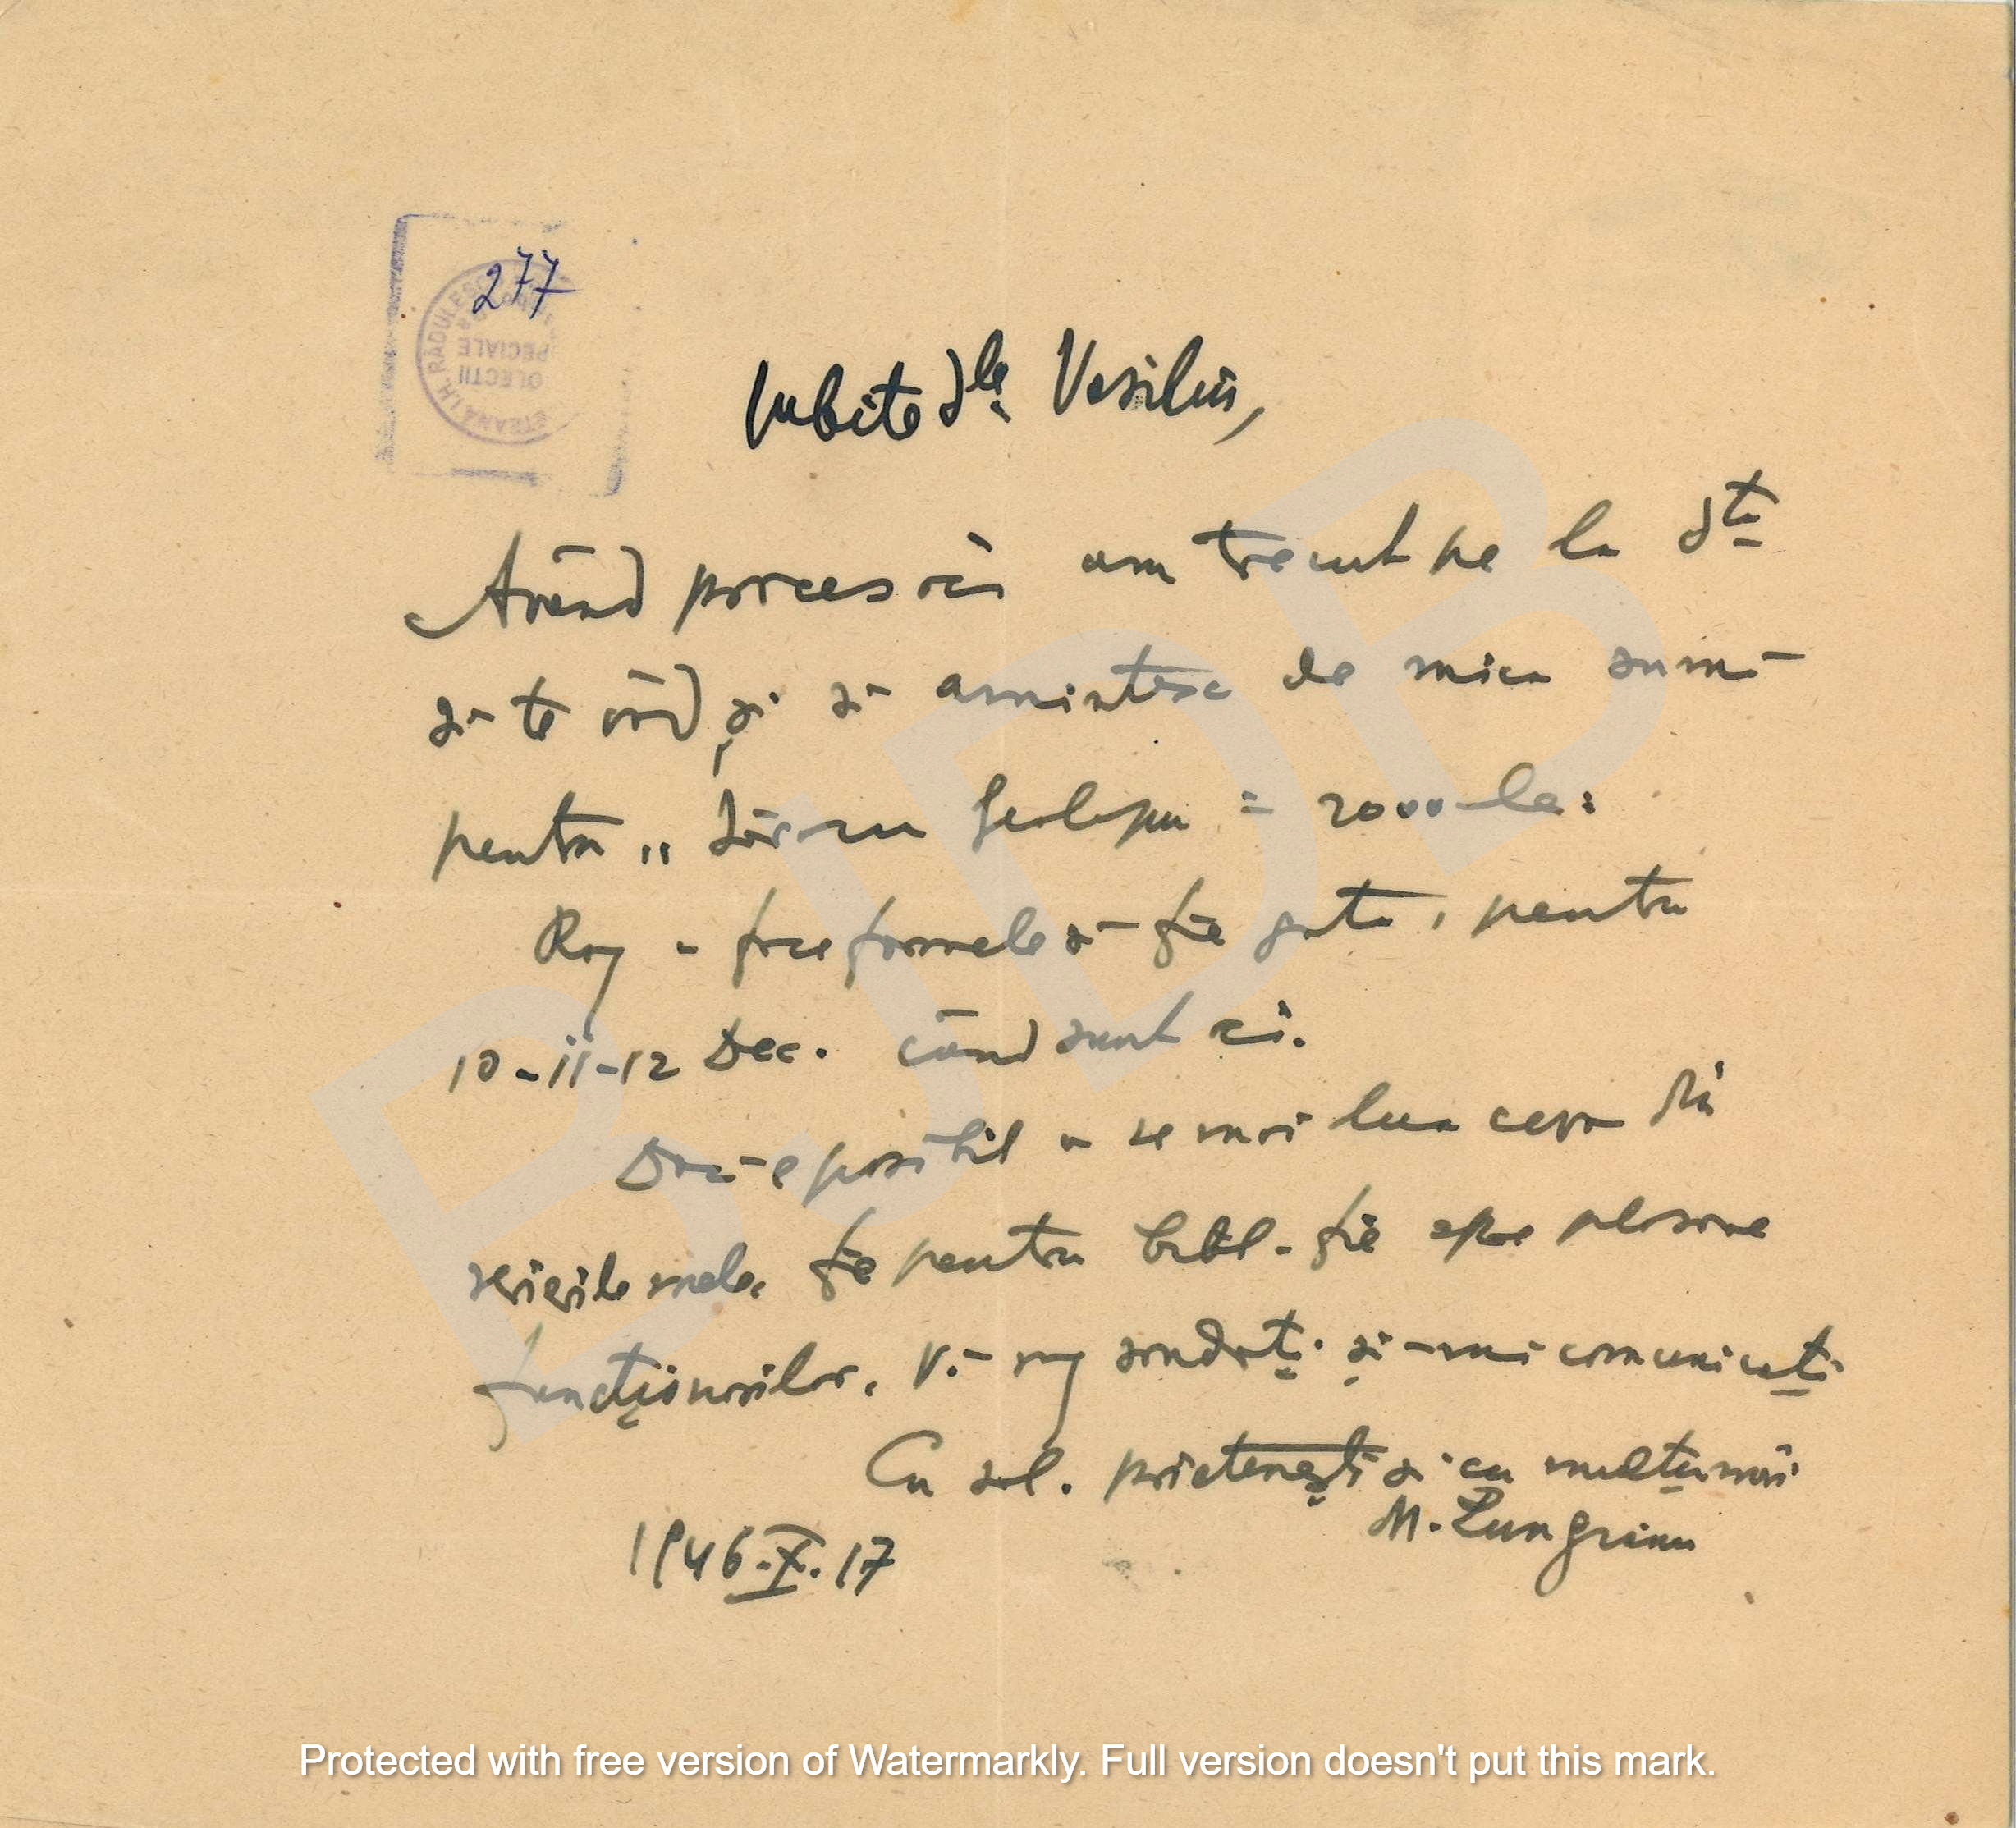 277
Iubite Dle Vasiliu,
Având proces aici am trecut pe la Dta
să te văd și să amintesc de mica sumă
pentru = 2000 lei
Rog a face formele să fie gata, pentru
10-11-12 Dec. când sunt aici.
Dacă e posibil a se mai lua ceva din
scrierile mele, fie pentru bibl. fie spre
funcționarilor. Vă rog sondați și-mi comunicați
Cu sal. prietenești și cu mulțumiri
M. Lungianu
1946.X.17
RĂDULESCU
COLECȚII
SPECIALE
BJDB
Protected with free version of Watermarkly. Full version doesn't put this mark.